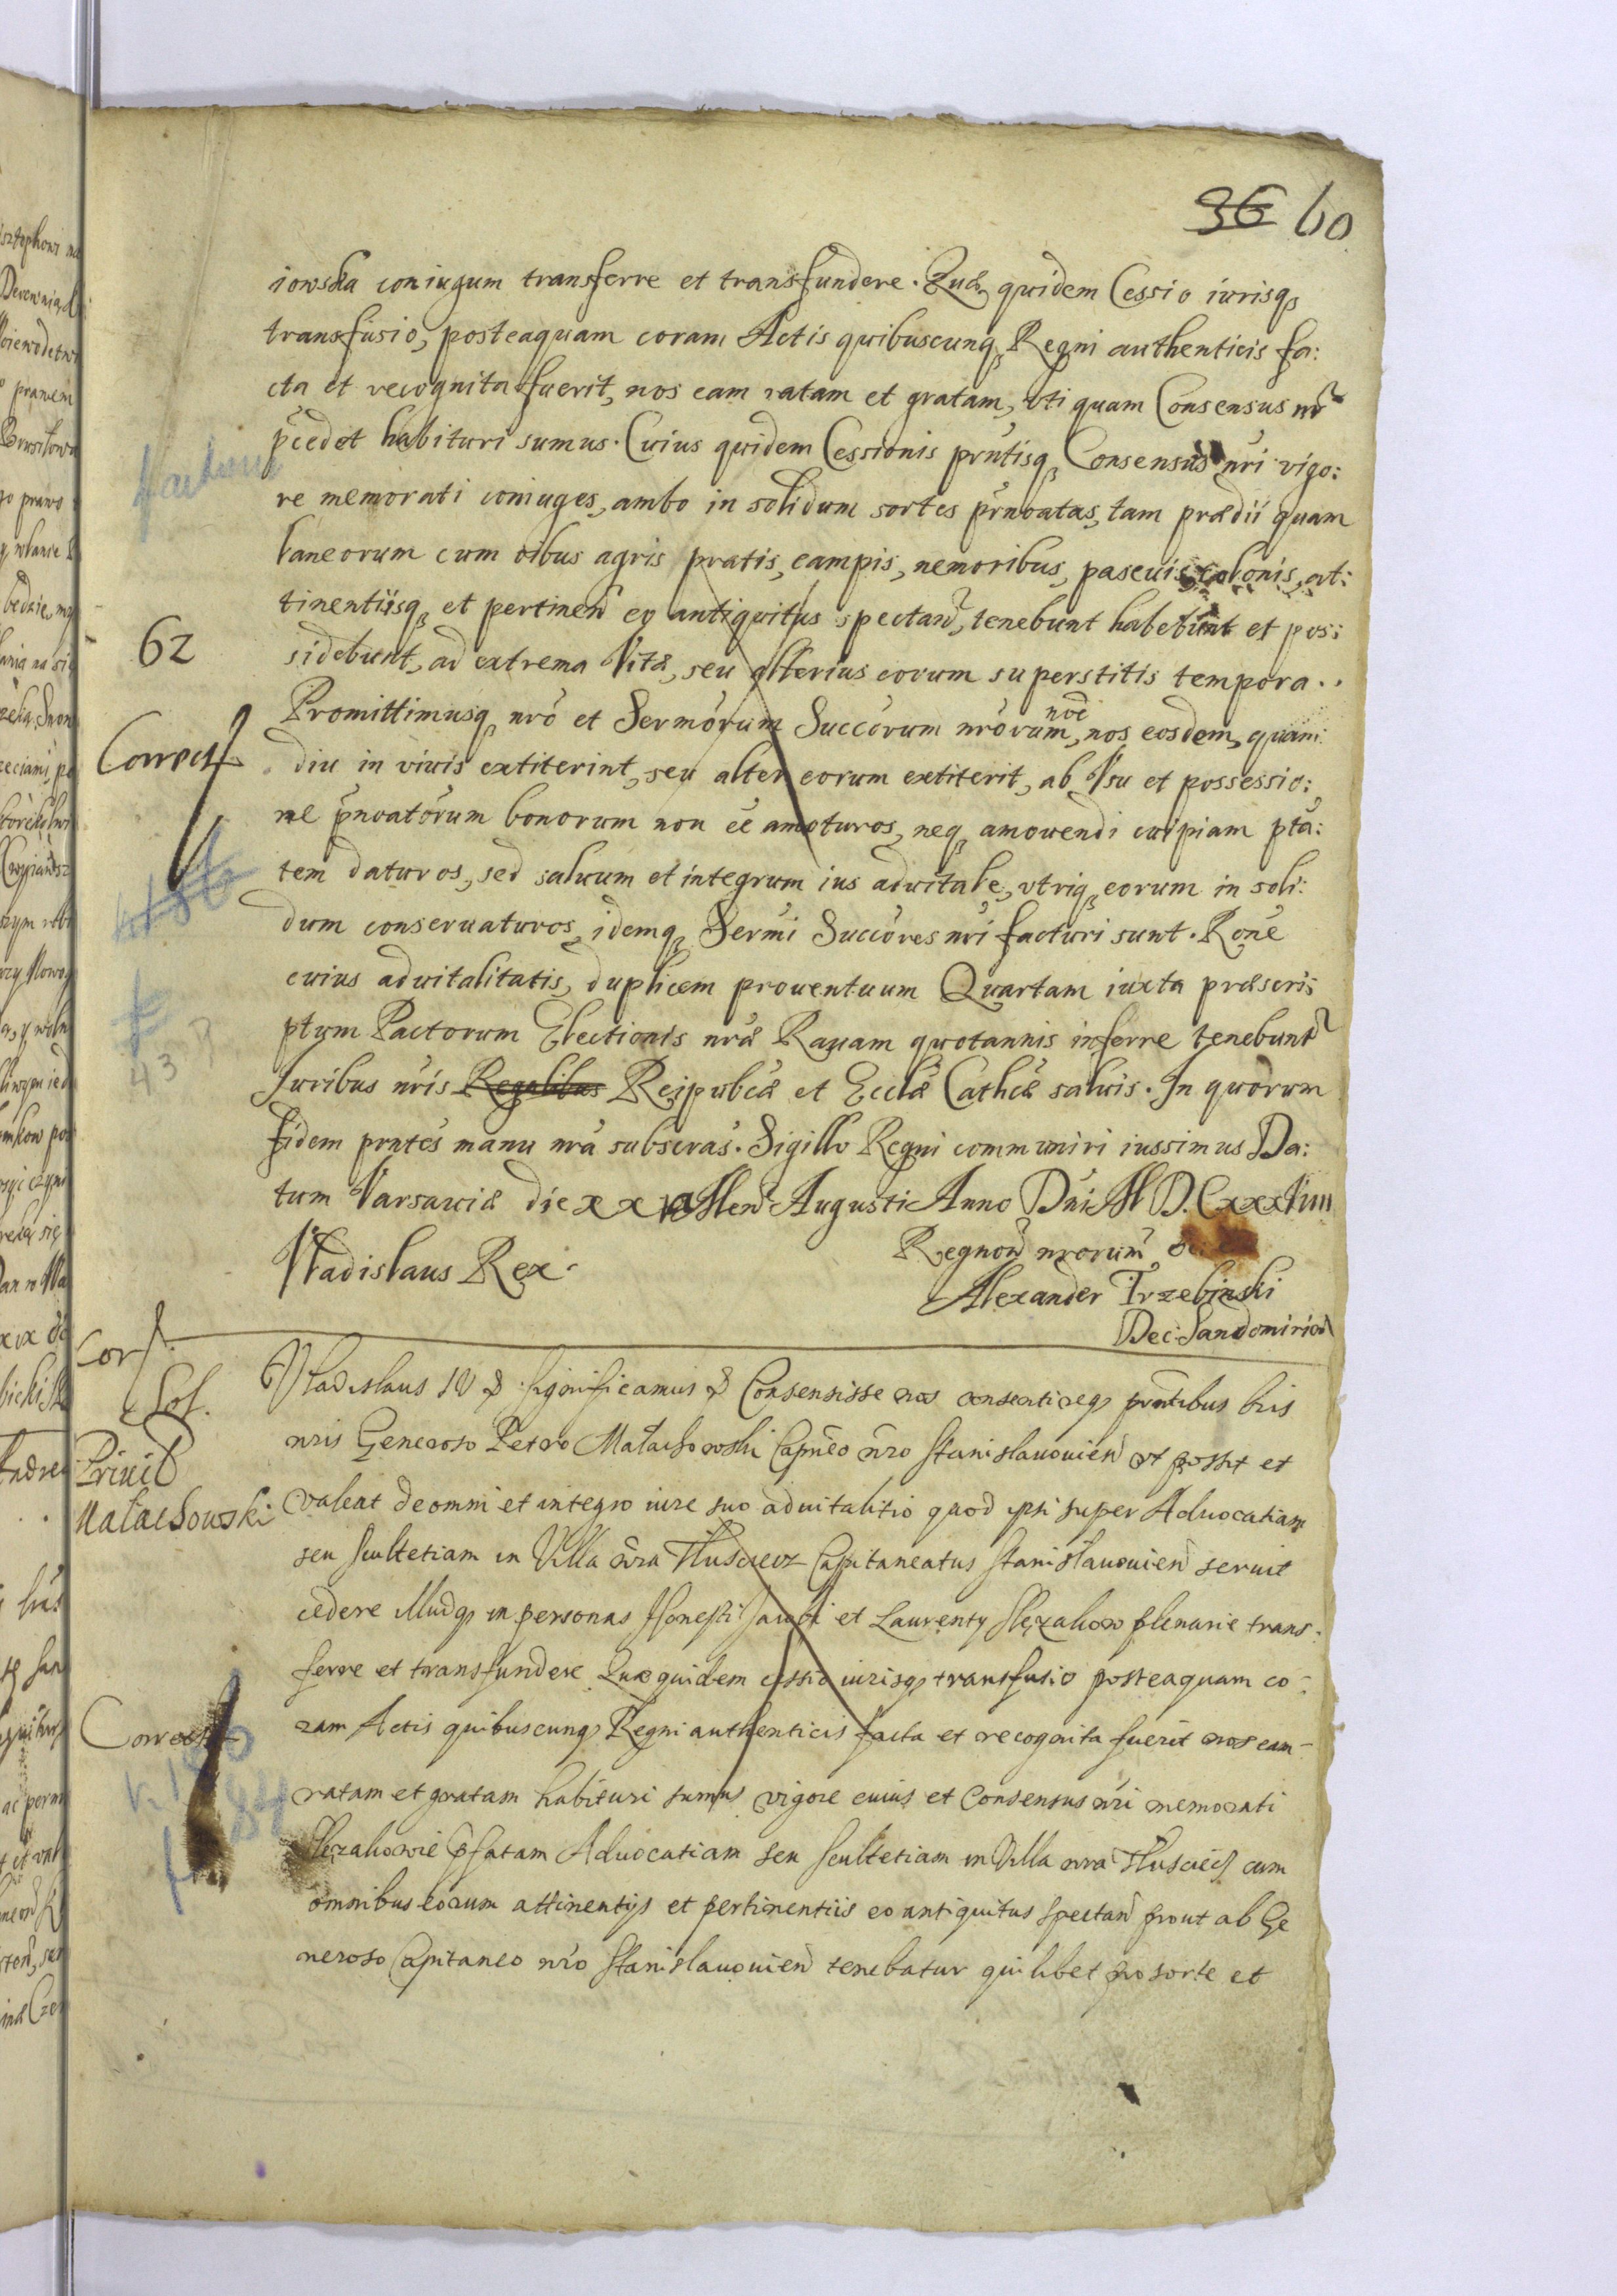 36 60
iowska coniugum transferre et transfundere. Quæ quidem Cessio iurisq
transfusio, posteaquam coram Actis quibuscunq Regni authenticis fa:
cta et recognita fuerit, nos eam ratam et gratam, vti quam Consensus nr
pcedet habituri sumus. Cuius quidem Cessionis prntisq Consensus nri vigo:
re memorati coniuges, ambo in solidum sortes prnoatas, tam prædii quam
laneorum cum oibus agris pratis, campis, nemoribus, pascuis, colonis, at:
tinentiisq et pertinen eo antiquitus spectan, tenebunt habebunt et pos:
62
sidebunt, ad extrema Vitæ, seu alterius eorum superstitis tempora..
Promittimusq nro et Sermorum Succorum nrorum noe, nos eosdem, quam
Correct
diu in viuis extiterint, seu alter eorum extiterit, ab Vsu et possessio:
ne pnoatorum bonorum non ee amoturos, neq amouendi cuipiam pta:
tem daturos, sed saluum et integrum ius aduitale, vtriq eorum in soli:
dum conseruaturos, idemq Sermi Succores nri facturi sunt. Rone
cuius aduitalitatis, duplicem prouentuum Quartam iuxta præscri:
ptum Pactorum Electionis nræ Rauam quotannis inferre tenebunt
43
Iuribus nris Regalibus Reipubcæ et Ecclæ Cathcæ saluis. In quorum
fidem prntes manu nra subscras. Sigillo Regni communiri iussimus Da:
tum Varsauiæ die xx Men Augusti Anno Dni M D. Cxxxviiii
Regnon nrorum
Vladislaus Rex.
Alexander Trzebinski
Dec: Sandomirien
Cor
Sol.
Priuil
Małachowski
Vladislaus IV & significamus & Consensisse nos consentireq prntibus lris
nris Generoso Petro Małachowski Capneo nro Stanislauouien vt possit et
valeat de omni et integro iure suo aduitalitio quod ipsi super Aduocatiam
seu scultetiam in Villa nra Tłusciecz Capitaneatus Stanislauouien seruit
cedere illudq in personas Honesti Jacobi et Laurenty Slęzakow plenarie trans:
ferre et transfundere Quæ quidem cessio iurisq transfusio posteaquam co:
Correct
ram Actis quibuscunq Regni authenticis facta et recognita fuerit nos eam
ratam et gratam habituri sumus vigore cuius et Consensus nri memorati
Slęzakowie pfatam Aduocatiam seu scultetiam in Villa nra Tłusciecz cum
omnibus eorum attinentijs et pertinentiis eo antiquitus spectan prout ab Ge
neroso Capitaneo nro Stanislauouien tenebatur quilibet pro sorte et